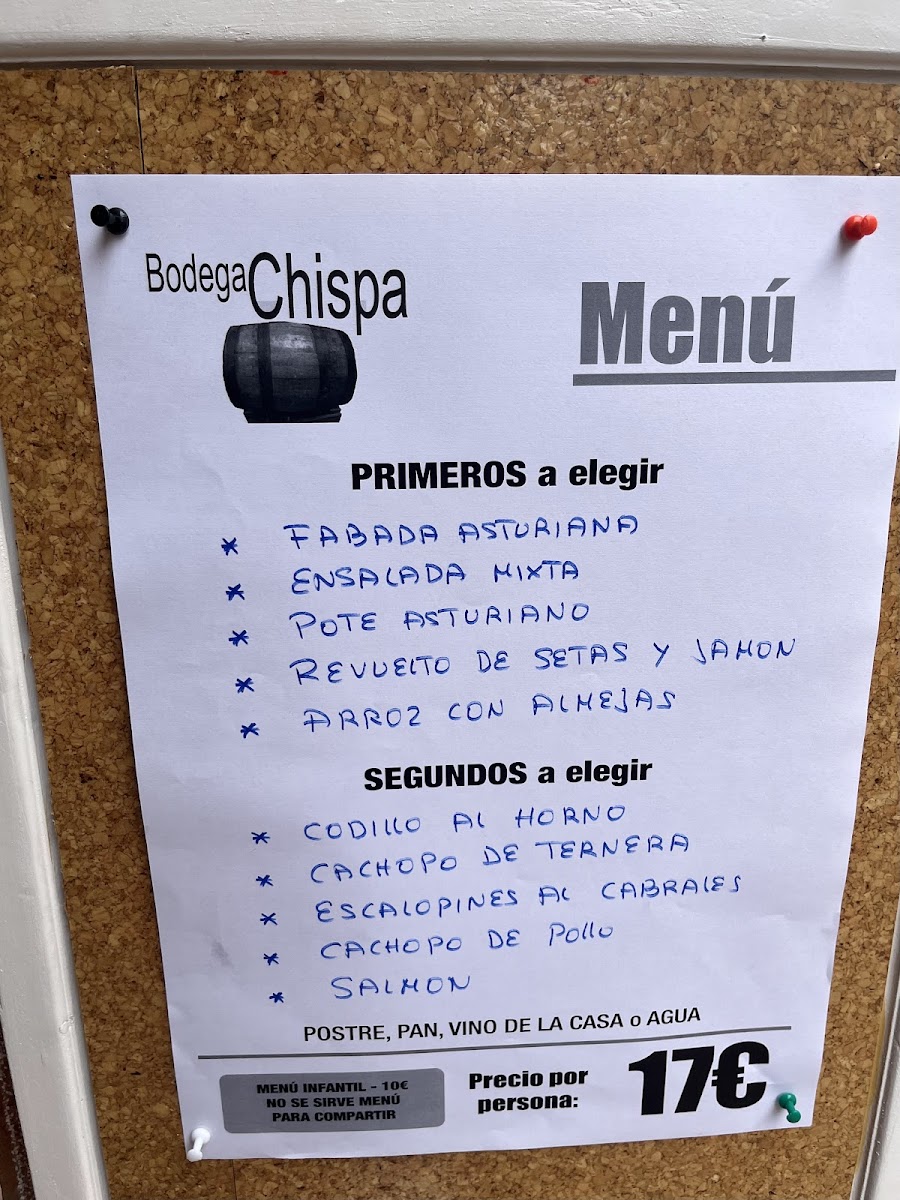 Bodega Chispa
Menú
PRIMEROS a elegir
* FABADA ASTURIANA
* ENSALADA MIXTA
* POTE ASTURIANO
* REVUELTO DE SETAS Y JAMON
* ARROZ CON ALMEJAS
SEGUNDOS a elegir
* CODILLO AL HORNO
* CACHOPO DE TERNERA
* ESCALOPINES AL CABRALES
* CACHOPO DE POLLO
* SALMON
POSTRE, PAN, VINO DE LA CASA o AGUA
MENÚ INFANTIL - 10€
NO SE SIRVE MENÚ
PARA COMPARTIR
Precio por
persona:
17€